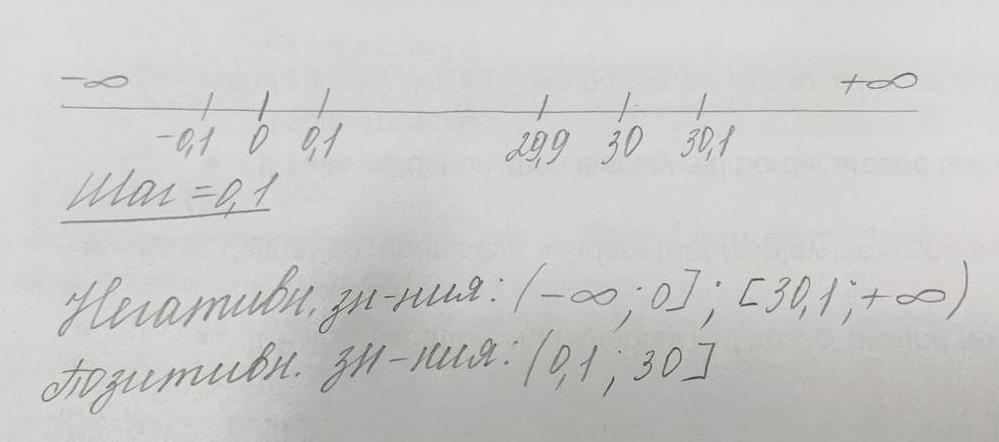 -∞ +∞
-0,1 0 0,1 29,9 30 30,1
Шаг = 0,1
Негативн. зн-ния: (-∞; 0]; [30,1; +∞)
Позитивн. зн-ния: (0,1; 30]